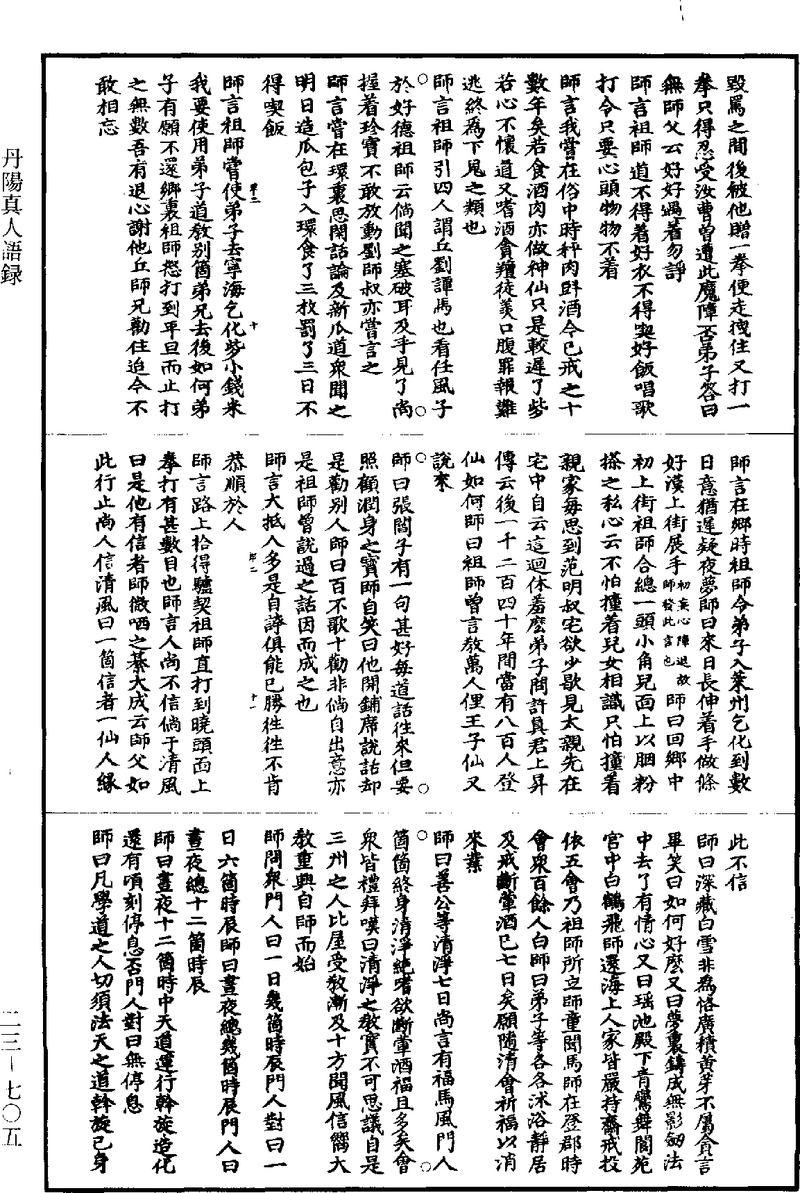 毀罵之間後被他贈一拳便走拽住又打一
拳只得忍受汝曹曾遭此魔障否弟子答曰
無師父云好好遇着勿諍
師言祖師道不得着好衣不得喫好飯唱歌
打令只要心頭物物不着
師言我嘗在俗中時秤肉㪷酒今已戒之十
數年矣若食酒肉亦做神仙只是較遲了些
若心不懷道又嗜酒貪羶徒羨口腹罪報難
逃終為下鬼之類也
師言祖師引四人謂丘劉譚馬也看任風子
於好德祖師云倘聞之塞破耳及乎見了尚
握着珍寶不敢放動劉師叔亦嘗言之
師言嘗在環裏思閑話論及新瓜道衆聞之
明日造瓜包子入環食了三枚罰了三日不
得喫飯
師言祖師嘗使弟子去寧海乞化些小錢米
我要使用弟子道教別箇弟兄去後如何弟
子有願不還鄉裏祖師怒打到平旦而止打
之無數吾有退心謝他丘師兄勸住迨今不
敢相忘
師言在鄉時祖師令弟子入萊州乞化到數
日意猶遲疑夜夢師曰來日長伸着手做條
好漢上街展手初業心障退故師發此言也師曰回鄉中
初上街祖師合總一頭小角兒面上以胭粉
搽之私心云不怕撞着兒女相識只怕撞着
親家每思到范明叔宅欲少歇見太親先在
宅中自云這迴休羞麽弟子問許真君上昇
傳云後一千二百四十年間當有八百人登
仙如何師曰祖師曾言教萬人俚王子仙又
說來
師曰張閻子有一句甚好每道話往來但要
照顧潤身之寶師自笑曰他開鋪席說話却
是勸別人師曰百不歌十勸非倘自出意亦
是祖師曾說過之話因而成之也
師言大抵人多是自誇俱能已勝徃徃不肯
恭順於人
師言路上拾得驢契祖師直打到曉頭面上
拳打有甚數目也師言人尚不信倘于清風
曰是他有信者師微哂之綦大成云師父如
此行止尚人信清風曰一箇信者一仙人緣
此不信
師曰深藏白雪非爲恡廣積黃芽不屬貪言
畢笑曰如何好麽又曰夢裏鑄成無影劒法
中去了有情心又曰瑶池殿下青鸞舞閬苑
宮中白鶴飛師還海上人家皆嚴持齋戒投
依五會乃祖師所立師童聞馬師在登郡時
會衆百餘人白師曰弟子等各各沐浴靜居
及戒斷葷酒已七日矣願隨清會祈福以消
來業
師曰善公等清淨七日尚言有福馬風門人
箇箇終身清淨絶嗜欲斷葷酒福且多矣會
衆皆禮拜嘆曰清淨之教實不可思議自是
三州之人比屋受教漸及十方聞風信嚮大
教重興自師而始
師問衆門人曰一日幾箇時辰門人對曰一
日六箇時辰師曰晝夜總幾箇時辰門人曰
晝夜總十二箇時辰
師曰晝夜十二箇時中天道運行斡旋造化
還有頃刻停息否門人對曰無停息
師曰凡學道之人切須法天之道斡旋己身
丹陽真人語録
二三—七〇五